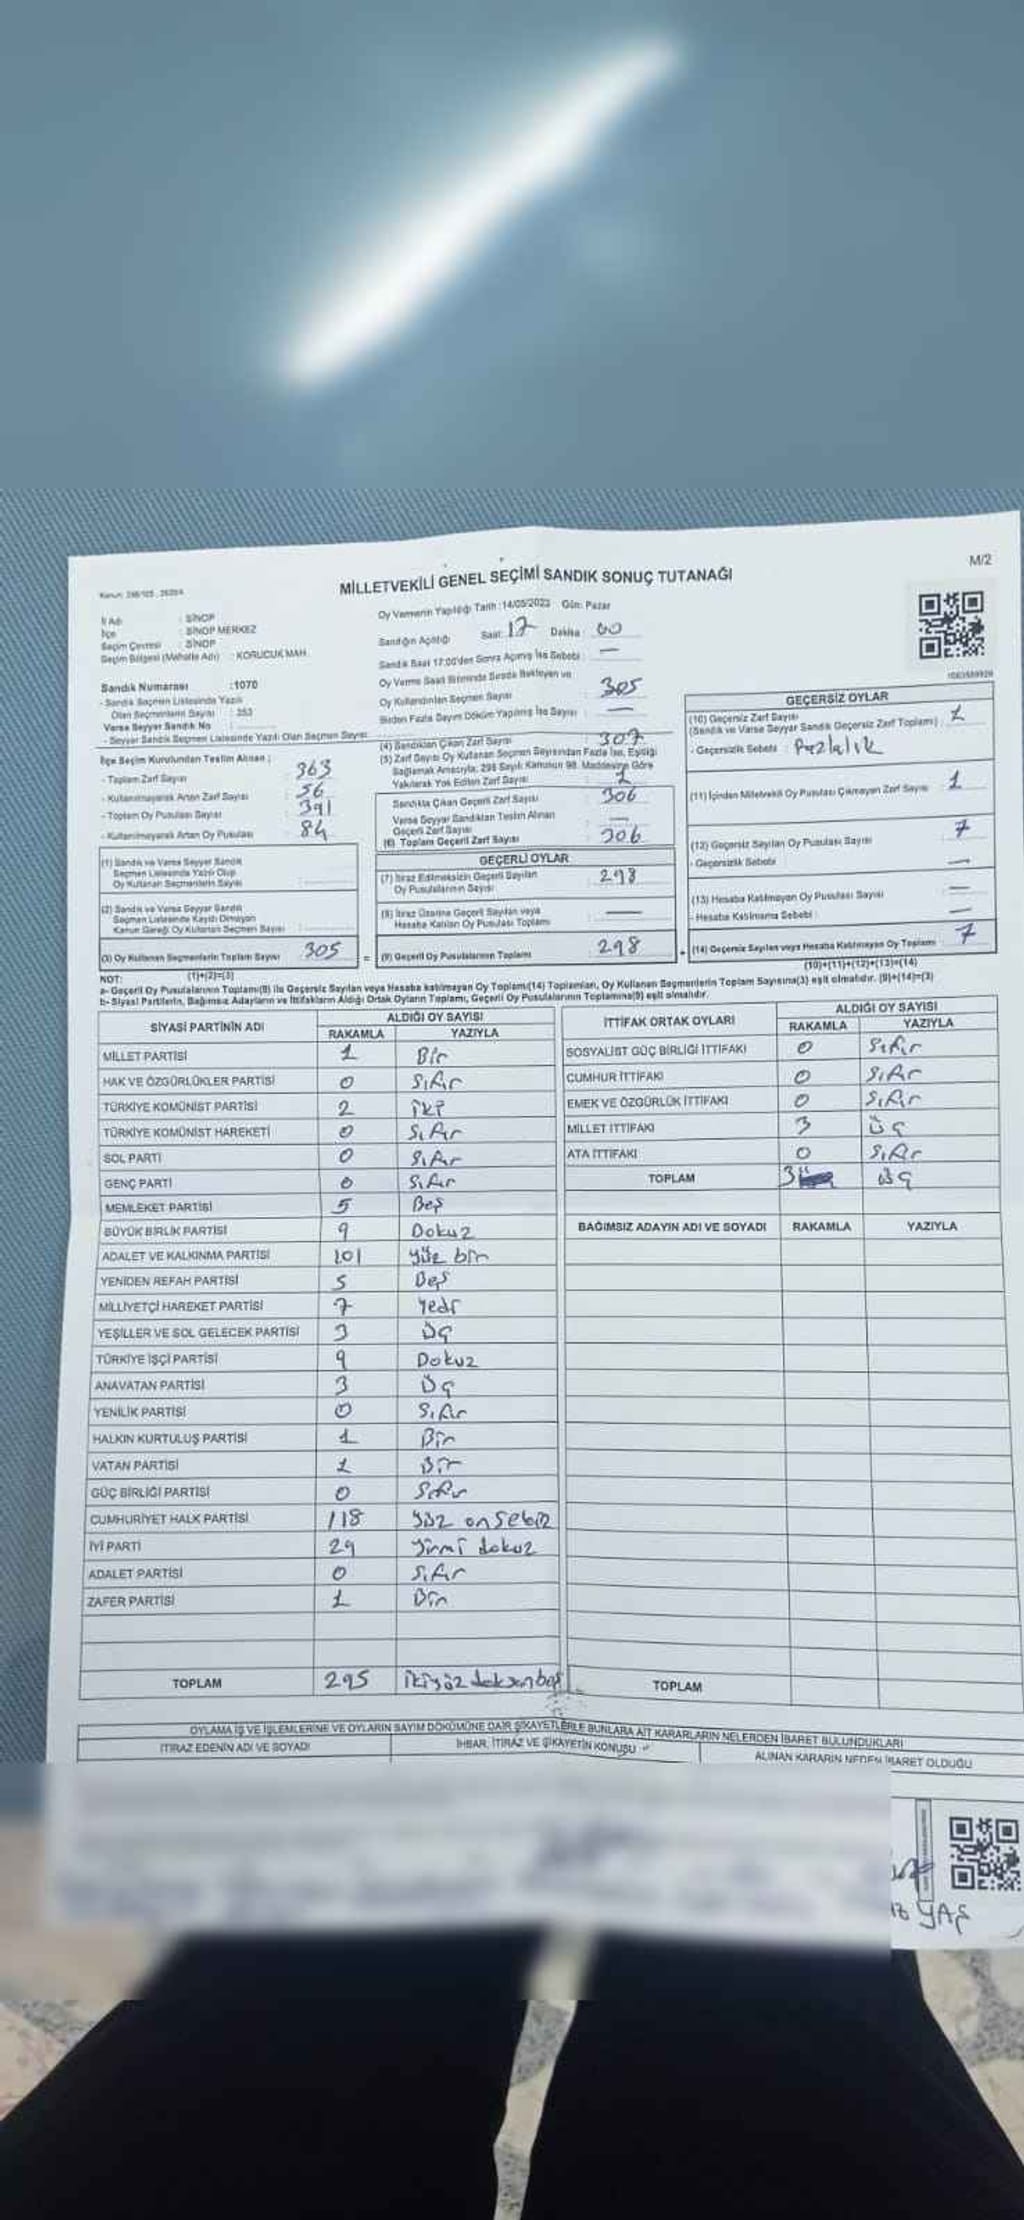 M/2
MİLLETVEKİLİ GENEL SEÇİMİ SANDIK SONUÇ TUTANAĞI
İl Adı : SİNOP
İlçe : SİNOP MERKEZ
Seçim Çevresi : SİNOP
Seçim Bölgesi (Mahalle Adı) : KORUCUK MAH.
Oy Vermenin Yapıldığı Tarih : 14/05/2023 Gün: Pazar
Sandığın Açıldığı Saat: 17 Dakika : 00
Sandık Saat 17:00'den Sonra Açılmış İse Sebebi : —
Oy Verme Saati Bitiminde Sırada Bekleyen ve
Oy Kullandırılan Seçmen Sayısı 305
Birden Fazla Sayım Döküm Yapılmış İse Sayısı : —
Sandık Numarası : 1070
- Sandık Seçmen Listesinde Yazılı
Olan Seçmenlerin Sayısı : 353
Varsa Seyyar Sandık No :
- Seyyar Sandık Seçmen Listesinde Yazılı Olan Seçmen Sayısı:
İlçe Seçim Kurulundan Teslim Alınan ;
- Toplam Zarf Sayısı : 363
- Kullanılmayarak Artan Zarf Sayısı : 56
- Toplam Oy Pusulası Sayısı : 391
- Kullanılmayarak Artan Oy Pusulası : 84
(1) Sandık ve Varsa Seyyar Sandık
Seçmen Listesinde Yazılı Olup
Oy Kullanan Seçmenlerin Sayısı :
(2) Sandık ve Varsa Seyyar Sandık
Seçmen Listesinde Kayıtlı Olmayan
Kanun Gereği Oy Kullanan Seçmen Sayısı :
(3) Oy Kullanan Seçmenlerin Toplam Sayısı 305
(1)+(2)=(3)
(4) Sandıktan Çıkan Zarf Sayısı 307
(5) Zarf Sayısı Oy Kullanan Seçmen Sayısından Fazla İse, Eşitliği
Sağlamak Amacıyla, 298 Sayılı Kanunun 98. Maddesine Göre
Yakılarak Yok Edilen Zarf Sayısı 1
Sandıkta Çıkan Geçerli Zarf Sayısı 306
Varsa Seyyar Sandıktan Teslim Alınan
Geçerli Zarf Sayısı : —
(6) Toplam Geçerli Zarf Sayısı 306
GEÇERLİ OYLAR
(7) İtiraz Edilmeksizin Geçerli Sayılan
Oy Pusulalarının Sayısı : 298
(8) İtiraz Üzerine Geçerli Sayılan veya
Hesaba Katılan Oy Pusulası Toplamı : —
= (9) Geçerli Oy Pusulalarının Toplamı 298
GEÇERSİZ OYLAR
(10) Geçersiz Zarf Sayısı
(Sandık ve Varsa Seyyar Sandık Geçersiz Zarf Toplamı) : 1
- Geçersizlik Sebebi : Fazlalık
(11) İçinden Milletvekili Oy Pusulası Çıkmayan Zarf Sayısı 1
(12) Geçersiz Sayılan Oy Pusulası Sayısı 7
- Geçersizlik Sebebi —
(13) Hesaba Katılmayan Oy Pusulası Sayısı —
- Hesaba Katılmama Sebebi : —
+ (14) Geçersiz Sayılan veya Hesaba Katılmayan Oy Toplamı 7
(10)+(11)+(12)+(13)=(14)
NOT:
a- Geçerli Oy Pusulalarının Toplamı(9) ile Geçersiz Sayılan veya Hesaba katılmayan Oy Toplamı(14) Toplamları, Oy Kullanan Seçmenlerin Toplam Sayısına(3) eşit olmalıdır. (9)+(14)=(3)
b- Siyasi Partilerin, Bağımsız Adayların ve İttifakların Aldığı Ortak Oyların Toplamı, Geçerli Oy Pusulalarının Toplamına(9) eşit olmalıdır.
SİYASİ PARTİNİN ADI ALDIĞI OY SAYISI
RAKAMLA YAZIYLA
MİLLET PARTİSİ 1 Bir
HAK VE ÖZGÜRLÜKLER PARTİSİ 0 Sıfır
TÜRKİYE KOMÜNİST PARTİSİ 2 iki
TÜRKİYE KOMÜNİST HAREKETİ 0 Sıfır
SOL PARTİ 0 Sıfır
GENÇ PARTİ 0 Sıfır
MEMLEKET PARTİSİ 5 Beş
BÜYÜK BİRLİK PARTİSİ 9 Dokuz
ADALET VE KALKINMA PARTİSİ 101 Yüz bir
YENİDEN REFAH PARTİSİ 5 Beş
MİLLİYETÇİ HAREKET PARTİSİ 7 Yedi
YEŞİLLER VE SOL GELECEK PARTİSİ 3 Üç
TÜRKİYE İŞÇİ PARTİSİ 9 Dokuz
ANAVATAN PARTİSİ 3 Üç
YENİLİK PARTİSİ 0 Sıfır
HALKIN KURTULUŞ PARTİSİ 1 Bir
VATAN PARTİSİ 1 Bir
GÜÇ BİRLİĞİ PARTİSİ 0 Sıfır
CUMHURİYET HALK PARTİSİ 118 Yüz on sekiz
İYİ PARTİ 29 Yirmi dokuz
ADALET PARTİSİ 0 Sıfır
ZAFER PARTİSİ 1 Bir
TOPLAM 295 ikiyüz doksan beş
İTTİFAK ORTAK OYLARI ALDIĞI OY SAYISI
RAKAMLA YAZIYLA
SOSYALİST GÜÇ BİRLİĞİ İTTİFAKI 0 Sıfır
CUMHUR İTTİFAKI 0 Sıfır
EMEK VE ÖZGÜRLÜK İTTİFAKI 0 Sıfır
MİLLET İTTİFAKI 3 Üç
ATA İTTİFAKI 0 Sıfır
TOPLAM 3 Üç
BAĞIMSIZ ADAYIN ADI VE SOYADI RAKAMLA YAZIYLA
TOPLAM
OYLAMA İŞ VE İŞLEMLERİNE VE OYLARIN SAYIM DÖKÜMÜNE DAİR ŞİKAYETLERLE BUNLARA AİT KARARLARIN NELERDEN İBARET BULUNDUKLARI
İTİRAZ EDENİN ADI VE SOYADI
İHBAR, İTİRAZ VE ŞİKAYETİN KONUSU
ALINAN KARARIN NEDEN İBARET OLDUĞU
YAŞ